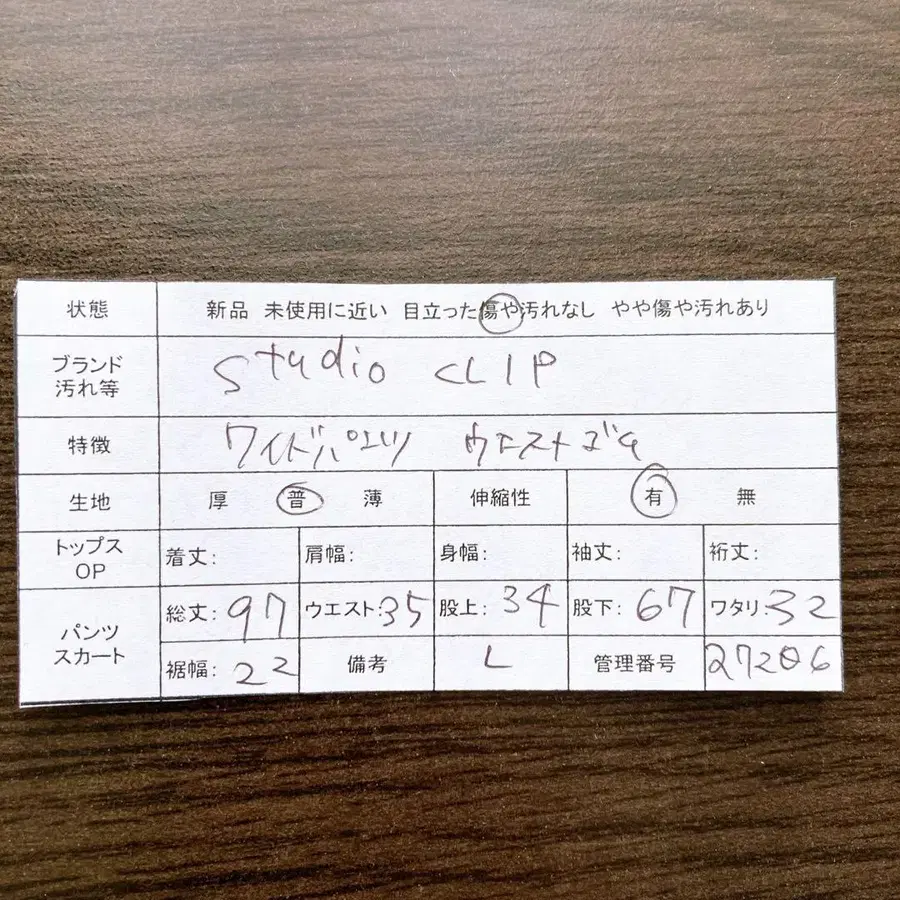 状態 新品 未使用に近い 目立った傷や汚れなし やや傷や汚れあり
ブランド 汚れ等 studio CLIP
特徴 ワイドパンツ ウエストゴム
生地 厚 普 薄 伸縮性 有 無
トップス OP 着丈: 肩幅: 身幅: 袖丈: 裄丈:
パンツ スカート 総丈: 97 ウエスト: 35 股上: 34 股下: 67 ワタリ: 32
裾幅: 22 備考 L 管理番号 27206